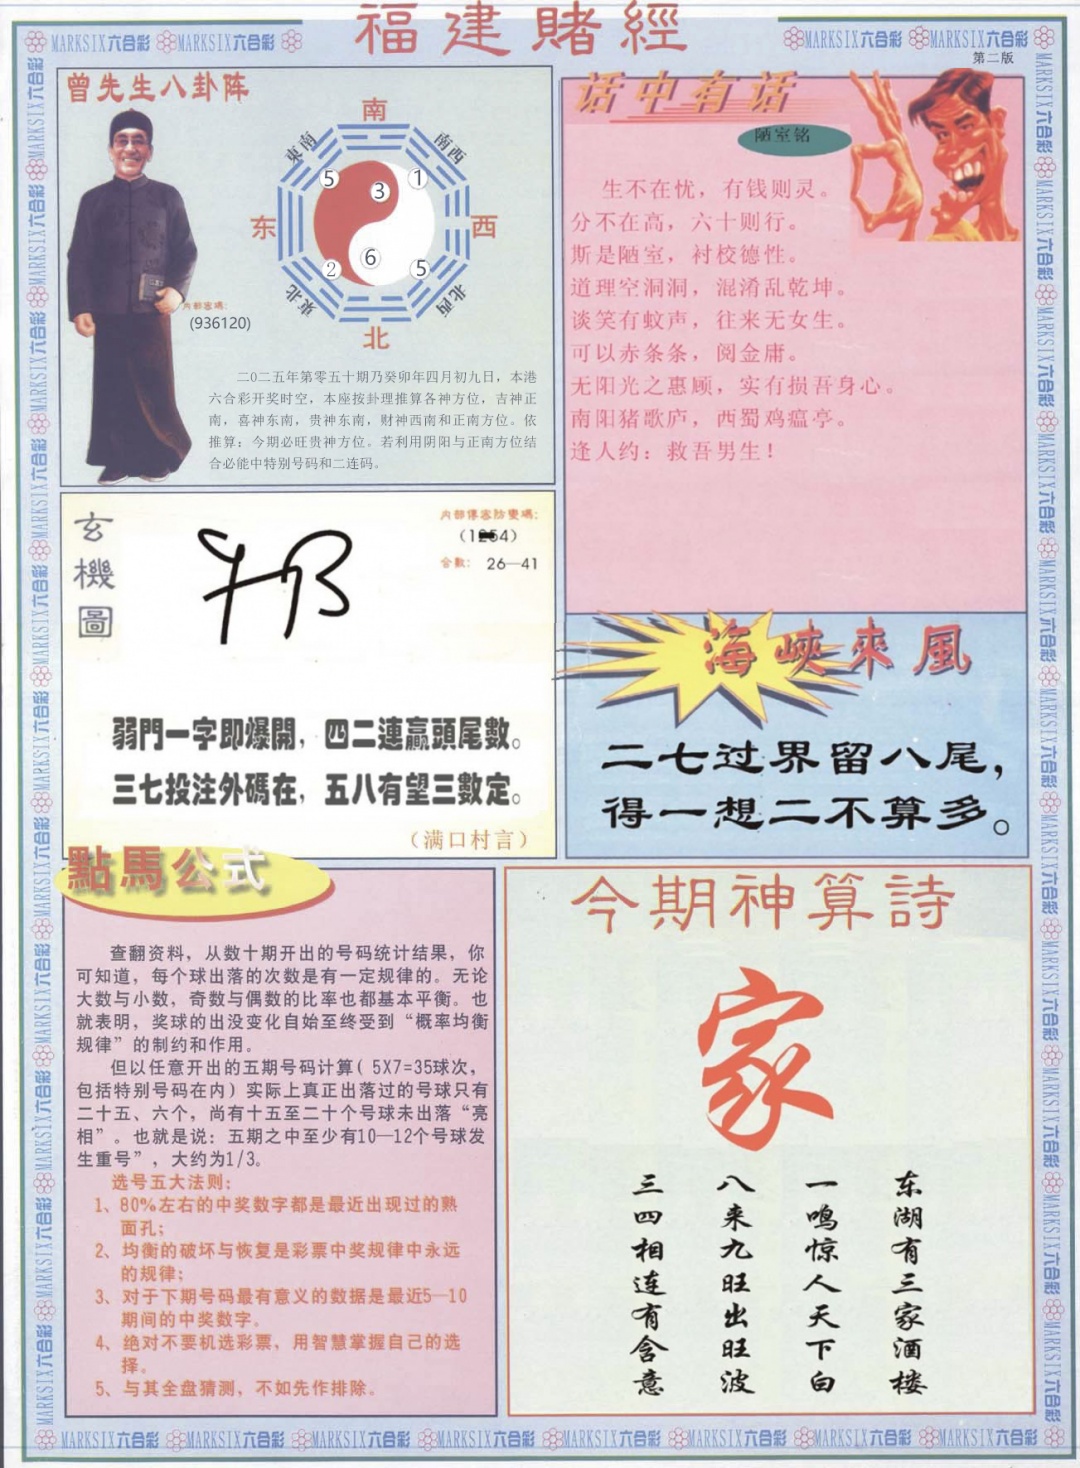 福建賭經
MARKSIX六合彩 MARKSIX六合彩
MARKSIX六合彩 MARKSIX六合彩
第二版
曾先生八卦阵
南
東南
南西
5
3
1
东
西
2
6
5
東北
北西
北
内部密碼:
(936120)
二0二五年第零五十期乃癸卯年四月初九日，本港
六合彩开奖时空，本座按卦理推算各神方位，吉神正
南，喜神东南，贵神东南，财神西南和正南方位。依
推算：今期必旺贵神方位。若利用阴阳与正南方位结
合必能中特别号码和二连码。
话中有话
陋室铭
生不在忧，有钱则灵。
分不在高，六十则行。
斯是陋室，衬校德性。
道理空洞洞，混淆乱乾坤。
谈笑有蚊声，往来无女生。
可以赤条条，阅金庸。
无阳光之惠顾，实有损吾身心。
南阳猪歌庐，西蜀鸡瘟亭。
逢人约：救吾男生！
玄機圖
内部傳密防變碼:
合數: 26—41
弱門一字即爆開，四二連贏頭尾數。
三七投注外碼在，五八有望三數定。
（满口村言）
海峽來風
二七过界留八尾，
得一想二不算多。
點馬公式
查翻资料，从数十期开出的号码统计结果，你
可知道，每个球出落的次数是有一定规律的。无论
大数与小数，奇数与偶数的比率也都基本平衡。也
就表明，奖球的出没变化自始至终受到“概率均衡
规律”的制约和作用。
但以任意开出的五期号码计算( 5X7=35球次，
包括特别号码在内) 实际上真正出落过的号球只有
二十五、六个，尚有十五至二十个号球未出落“亮
相”。也就是说：五期之中至少有10—12个号球发
生重号”，大约为1/3。
选号五大法则：
1、80%左右的中奖数字都是最近出现过的熟
面孔；
2、均衡的破坏与恢复是彩票中奖规律中永远
的规律；
3、对于下期号码最有意义的数据是最近5—10
期间的中奖数字。
4、绝对不要机选彩票，用智慧掌握自己的选
择。
5、与其全盘猜测，不如先作排除。
今期神算詩
家
东湖有三家酒楼
一鸣惊人天下白
八来九旺出旺波
三四相连有含意
MARKSIX六合彩 MARKSIX六合彩 MARKSIX六合彩 MARKSIX六合彩 MARKSIX六合彩 MARKSIX六合彩 MARKSIX六合彩 MARKSIX六合彩